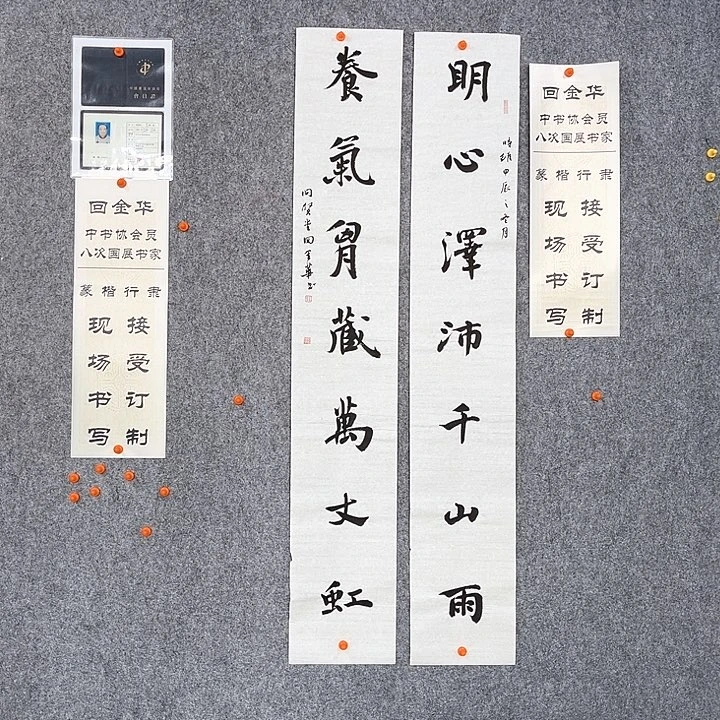 回金华
中书协会员
八次国展书家
篆楷行隶
现场书写
接受订制
明心澤沛千山雨
時維甲辰之冬月
養氣胷藏萬丈虹
回金華书
會員證
回金华
中书协会员
八次国展书家
篆楷行隶
现场书写
接受订制